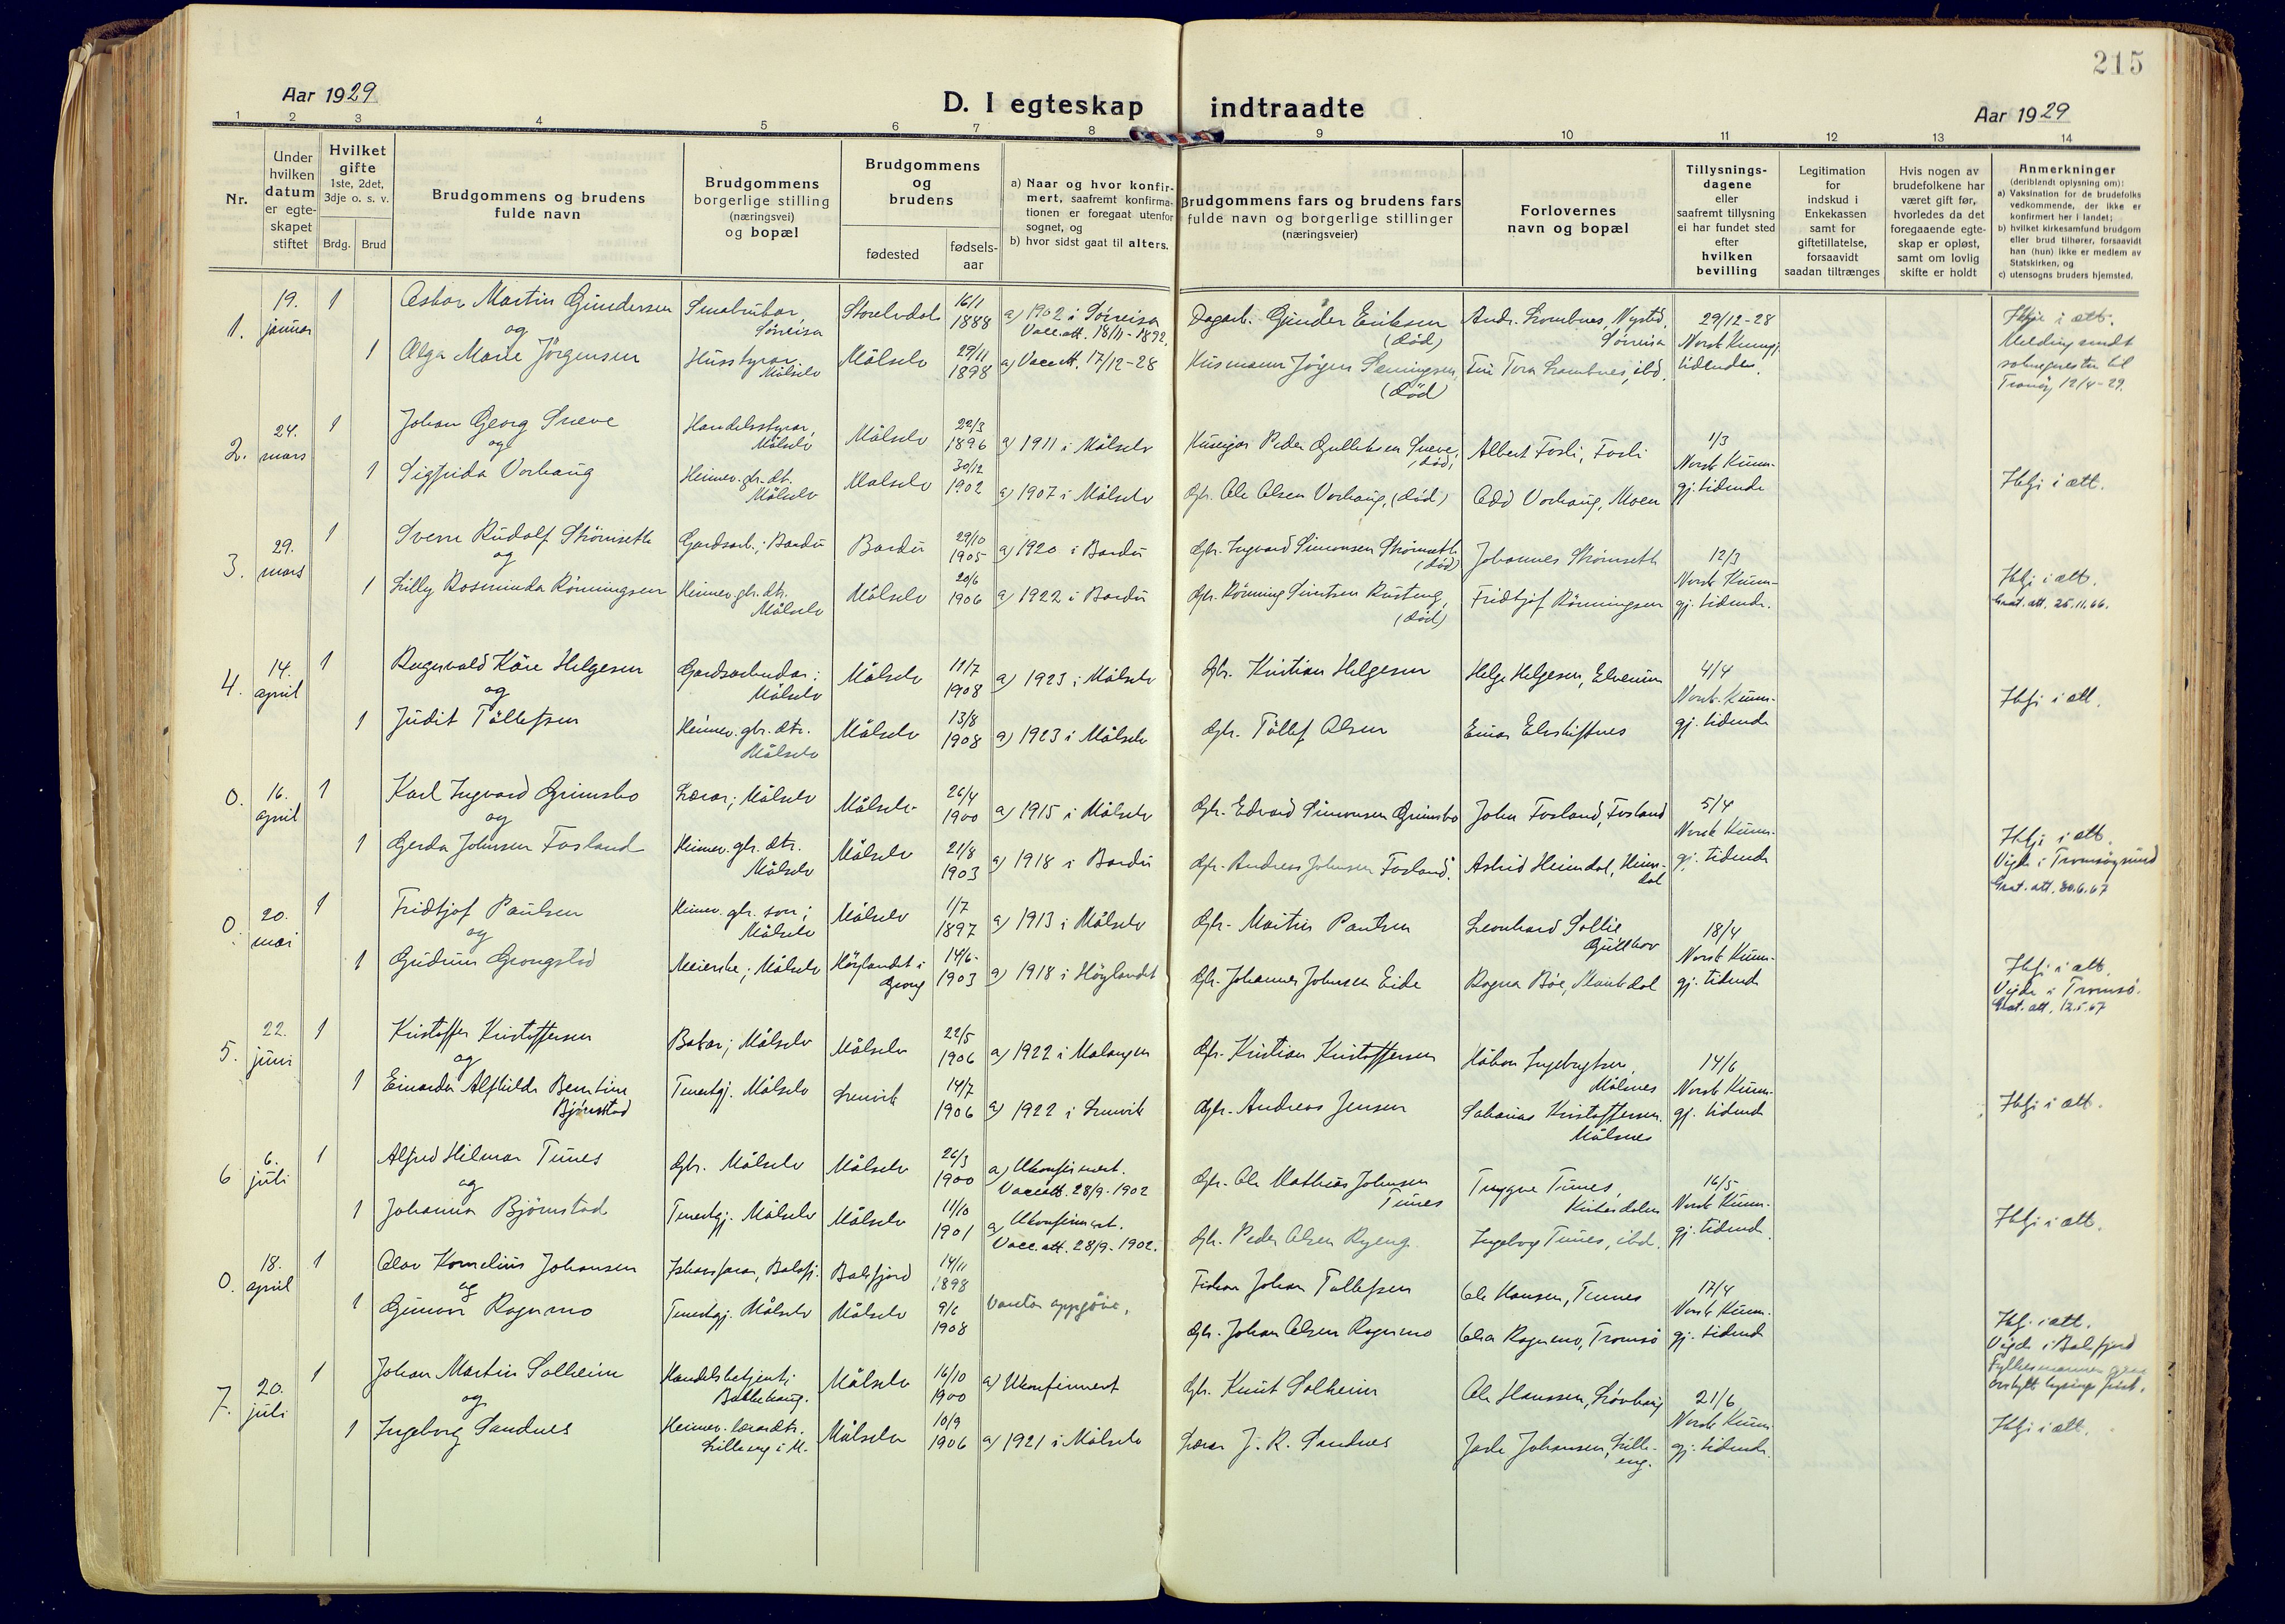 215
Aar 1929
D. I egteskap indtraadte
Aar 1929
1 2 3 4 5 6 7 8 9 10 11 12 13 14
Nr.
Under hvilken datum er egteskapet stiftet
Hvilket gifte 1ste, 2det, 3dje o. s. v.
Brdg. Brud
Brudgommens og brudens fulde navn
Brudgommens borgerlige stilling (næringsvei) og bopæl
Brudgommens og brudens
fødested
fødsels-aar
a) Naar og hvor konfirmert, saafremt konfirmationen er foregaat utenfor sognet, og
b) hvor sidst gaat til alters.
Brudgommens fars og brudens fars fulde navn og borgerlige stillinger (næringsveier)
Forlovernes navn og bopæl
Tillysningsdagene eller saafremt tillysning ei har fundet sted efter hvilken bevilling
Legitimation for indskud i Enkekassen samt for giftetillatelse, forsaavidt saadan tiltrænges
Hvis nogen av brudefolkene har været gift før, hvorledes da det foregaaende egteskap er opløst, samt om lovlig skifte er holdt
Anmerkninger (deriblandt oplysning om):
a) Vaksination for de brudefolks vedkommende, der ikke er konfirmert her i landet;
b) hvilket kirkesamfund brudgom eller brud tilhører, forsaavidt han (hun) ikke er medlem av Statskirken, og
c) utensogns bruders hjemsted.
1. 19. januar 1 Martin Gundersen Smabrukar, Sørreisa 16/1 1888 a) 1902 i Sørreisa Vacc.att. 18/11-1892. Dagarb. Gunder Eriksen (død) Andr. Lombnes, Nystad, Sørreisa 29/12-28 Norsk Kunngj. tidende.
og
1 Olga Marie Jørgensen Husstyrar. Målselv Målselv 29/11 1898 a) Vacc.att. 17/12-28 Husmann Jørgen (død) Tora Lombnes, ibd.
Melding sendt soknepresten til Tranøy 12/4-29.
2. 24. mars 1 Johan Georg Sneve Handelsstyrar, Målselv Målselv 22/3 1896 a) 1911 i Målselv Huseigar Peder Gulliksen Sneve, (død) Albert Fosli, Fosli 1/3 Norsk Kunngj. tidende
og
1 Sigfrida Vorhaug Heimev. gbr. dtr. Målselv Målselv 30/12 1902 a) 1907 i Målselv Gbr. Ole Olsen Vorhaug, (død) Odd Vorhaug, Moen
3. 29. mars 1 Sverre Rudolf Strømseth Gardsarb.; Bardu Bardu 29/10 1905 a) 1920 i Bardu Gbr. Ingvard Simonsen Strømseth (død) Johannes Strømseth 12/3 Norsk Kunngj. tidende.
og
1 Lilly Rosminda Rönningsen Heimev. gbr. dtr. Målselv Målselv 20/6 1906 a) 1922 i Bardu Gbr. Rönning Sivertsen Rusteng, (død) Fridtjof Rönningsen
Grat. att. 25.11.66.
4. 14. april 1 Ragnvald Kåre Helgesen Gardsarbeidar; Målselv Målselv 11/7 1908 a) 1923 i Målselv Gbr. Kristian Helgesen Helge Helgesen, Elverum 4/4 Norsk Kunngj. tidende
og
1 Judit Tollefsen Heimev. gbr. dtr. Målselv Målselv 13/8 1908 a) 1923 i Målselv Gbr. Tollef Olsen Einar Elvskiftnes
0. 16. april 1 Karl Ingvard Grimsbo Lærar; Målselv Målselv 26/4 1900 a) 1915 i Målselv Gbr. Edvard Simonsen Grimsbo John Fosland, Fosland 5/4 Norsk Kunngj. tidende
og
1 Gerda Johnsen Fosland Heimev. gbr. dtr. Målselv Målselv 21/8 1903 a) 1918 i Bardu Gbr. Andreas Johnsen Fosland. Astrid Heimdal, Heimdal
Vigde i Tromsøysund
Grat. att. 30.6.67
0. 20. mai 1 Fridtjof Paulsen Heimev. gbr. son; Målselv Målselv 1/7 1897 a) 1913 i Målselv Gbr. Martin Paulsen Leonhard Sollie Gullhav 18/4 Norsk Kunngj. tidende
og
1 Gudrun Grongstad Meierske; Målselv Høylandet i Grong 14/6 1903 a) 1918 i Høylandet Gbr. Johannes Johnsen Eide Ragna Bøe,
Vigde i Tromsø.
Grat. att. 12.5.67
5. 22. juni 1 Kristoffer Kristoffersen Målselv Målselv 22/5 1906 a) 1922 i Malangen Gbr. Kristian Kristoffersen Håkon Ingebrigtsen, Målsnes 14/6 Norsk Kunngj. tidende
og
1 Einarda Alfhilde Berntine Bjørnstad Tenestgj. Målselv Lenvik 14/7 1906 a) 1922 i Lenvik Gbr. Andreas Jensen Sakarias Kristoffersen. Målsnes
6 6. juli 1 Alfred Hilmar Tunes Gbr. Målselv Målselv 26/3 1900 a) Ukonfirmert. Vacc.att. 28/9-1902 Gbr. Ole Mathias Johnsen Tunes Trygve Tunes, Kirkesdalen 16/5 Norsk Kunngj. tidende
og
1 Johanna Bjørnstad Tenestgj. Målselv Målselv 11/10 1901 a) Ukonfirmert. Vacc.att. 28/9-1902. Gbr. Peder Olsen Ryeng Ingeborg Tunes, ibd.
0. 18. april 1 Olav Kornelius Johansen Ishavsfarar, Balsfj. Balsfjord 14/11 1898 Fiskar Johan Tollefsen Ole Hansen, Tunes 17/4 Norsk Kunngj. tidende
og
1 Gunvor Rognmo Tenestgj. Målselv Målselv 9/6 1908 Vantar oppgåve. Gbr. Johan Olsen Rognmo Olea Rognmo, Tromsø
Vigde i Balsfjord
7. 20. juli 1 Johan Martin Solheim Handelsbetjent; Bakkehaug. Målselv 16/10 1900 a) Ukonfirmert Gbr. Knut Solheim Ole Hanssen, Løvhaug 21/6 Norsk Kunngj. tidende.
og
1 Ingeborg Sandnes Heimev. lærardtr. Lilleeng i M. Målselv 10/9 1906 a) 1921 i Målselv Lærar J. R. Sandnes Jarle Johansen, Lilleeng.